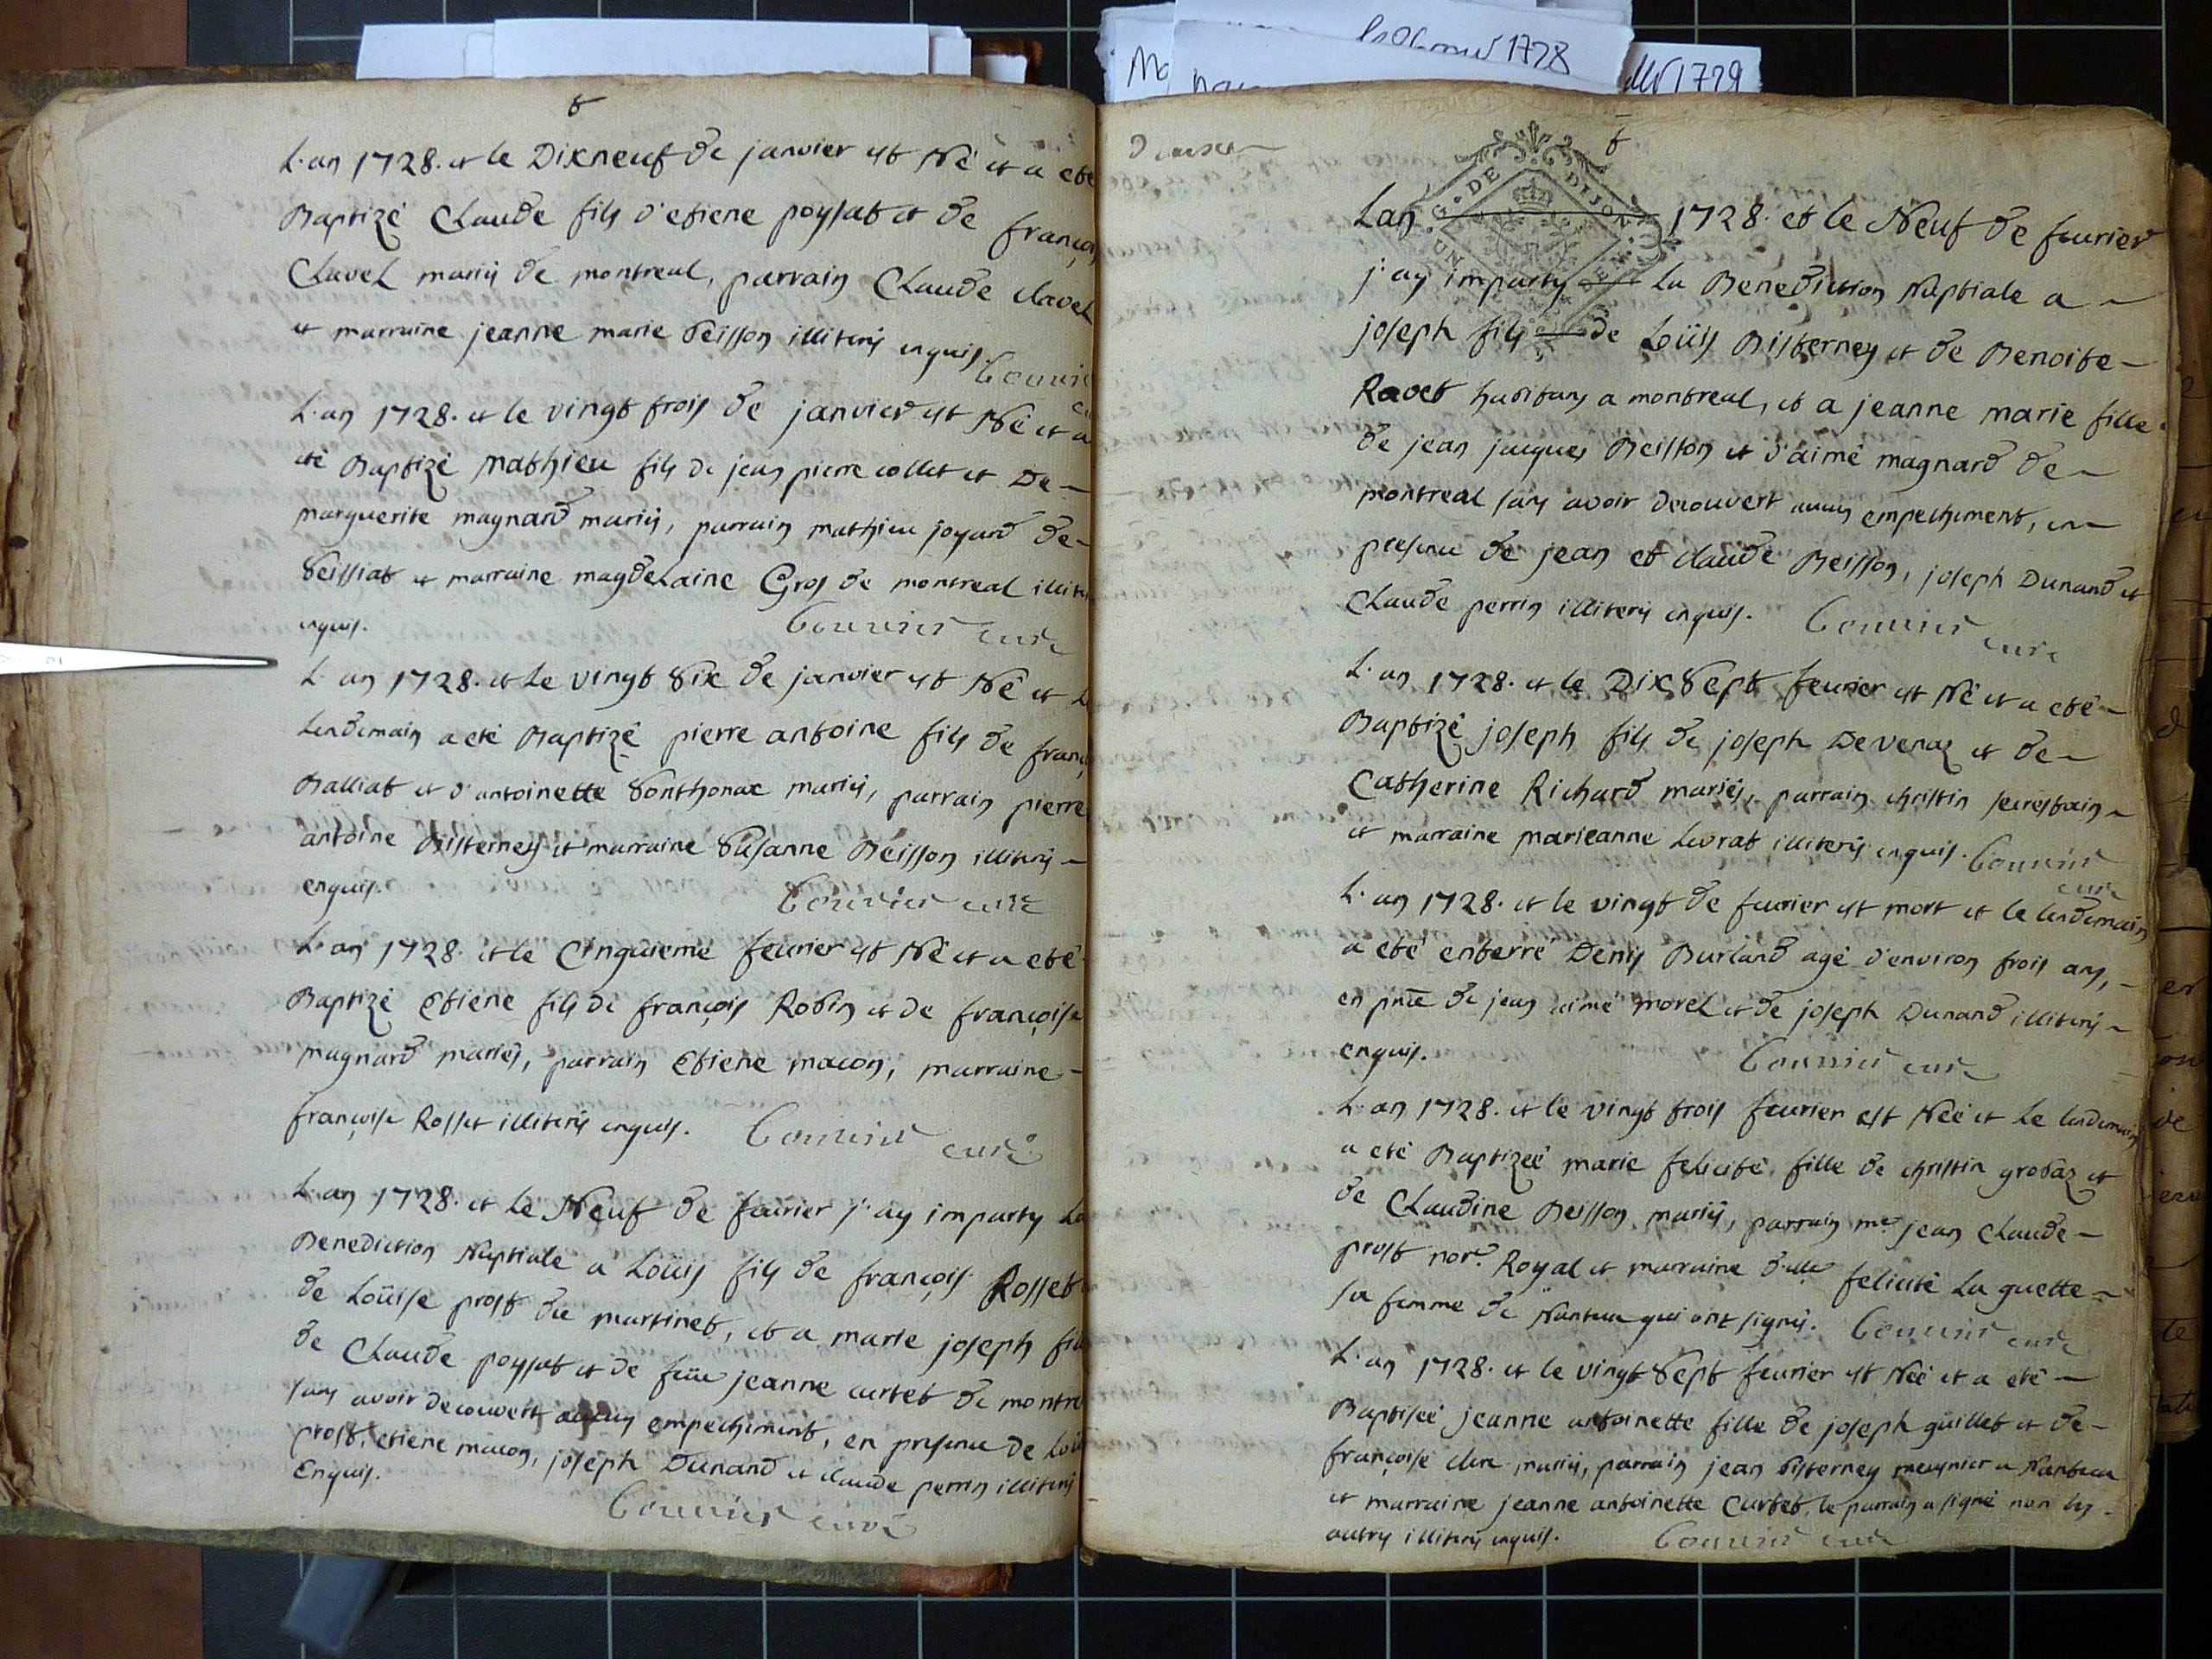 1728
1729
L'an 1728. et le Dixneuf de janvier est Né et a eté
Baptizé Claude fils d'etiene poysat et de françoi
Clavel mariés de montreal, parrain Claude clavel
et marraine jeanne marie Beisson illiterés enquis.
Couvier
L'an 1728. et le vingt trois de janvier est Né et a
eté Baptizé mathieu fils de jean pierre collet et De
marguerite magnard mariés, parrain mathieu joyard de
Beissiat et marraine magdelaine Gros de montreal illite
enquis.
Couvier curé
L'an 1728. et le vingt Six de janvier est Né et l
lendemain a eté Baptizé pierre antoine fils de franç
Balliat et d'antoinette Sonthonax mariés, parrain pierre
antoine Bisterney et marraine Susanne Beisson illiterés
enquis.
Couvier curé
L'an 1728. et le Cinquieme fevrier est Né et a eté
Baptizé Etiene fils de françois Robin et de françoise
magnard mariés, parrain Etiene macon, marraine
françoise Rosset illiterés enquis. Couvier curé
L'an 1728. et le Neuf de fevrier j'ay imparty La
Benediction Nuptiale a Loüis fils de françois Rosset
de Loüise prost du martinet, et a marie joseph fil
de Claude poysat et de feüe jeanne curtet de montre
sans avoir decouvert aucun empechement, en presence de Loü
prost, etiene macon, joseph Dunand et claude perrin illiterés
Enquis.
Couvier curé
Lan 1728. et le Neuf de fevrier
j'ay imparty la Benediction Nuptiale a
joseph fils de Loüis Bisterney et de Benoite
Ravet habitans a montreal, et a jeanne marie fille
de jean jacques Beisson et d'aimé magnard de
montreal sans avoir decouvert aucun empechement, en
presence de jean et claude Beisson, joseph Dunand et
Claude perrin illiterés enquis. Couvier curé
L'an 1728. et le Dix Sept fevrier est Né et a eté
Baptizé joseph fils de joseph Devenaz et de
Catherine Richard mariés, parrain christin secrestain
et marraine marieanne Levrat illiterés enquis. Couvier
curé
L'an 1728. et le vingt de fevrier est mort et le lendemain
a eté enterré Denis Burland agé d'environ trois ans,
en pnce de jean aimé morel et de joseph Dunand illiterés
enquis. Couvier curé
L'an 1728. et le vingt trois fevrier est Née et Le lendemain
a eté Baptizeé marie felicité fille de christin grobaz et
de Claudine Beisson mariés, parrain me jean Claude
prost nore. Royal et marraine dlle felicité La guette
sa femme de Nantua qui ont signés. Couvier curé
L'an 1728. et le vingt Sept fevrier est Née et a eté
Baptiseé jeanne antoinette fille de joseph guillet et de
françoise clere mariés, parrain jean Bisterney meusnier a Nantua
et marraine jeanne antoinette Curtet, le parrain a signé non les
autres illiterés enquis. Couvier curé